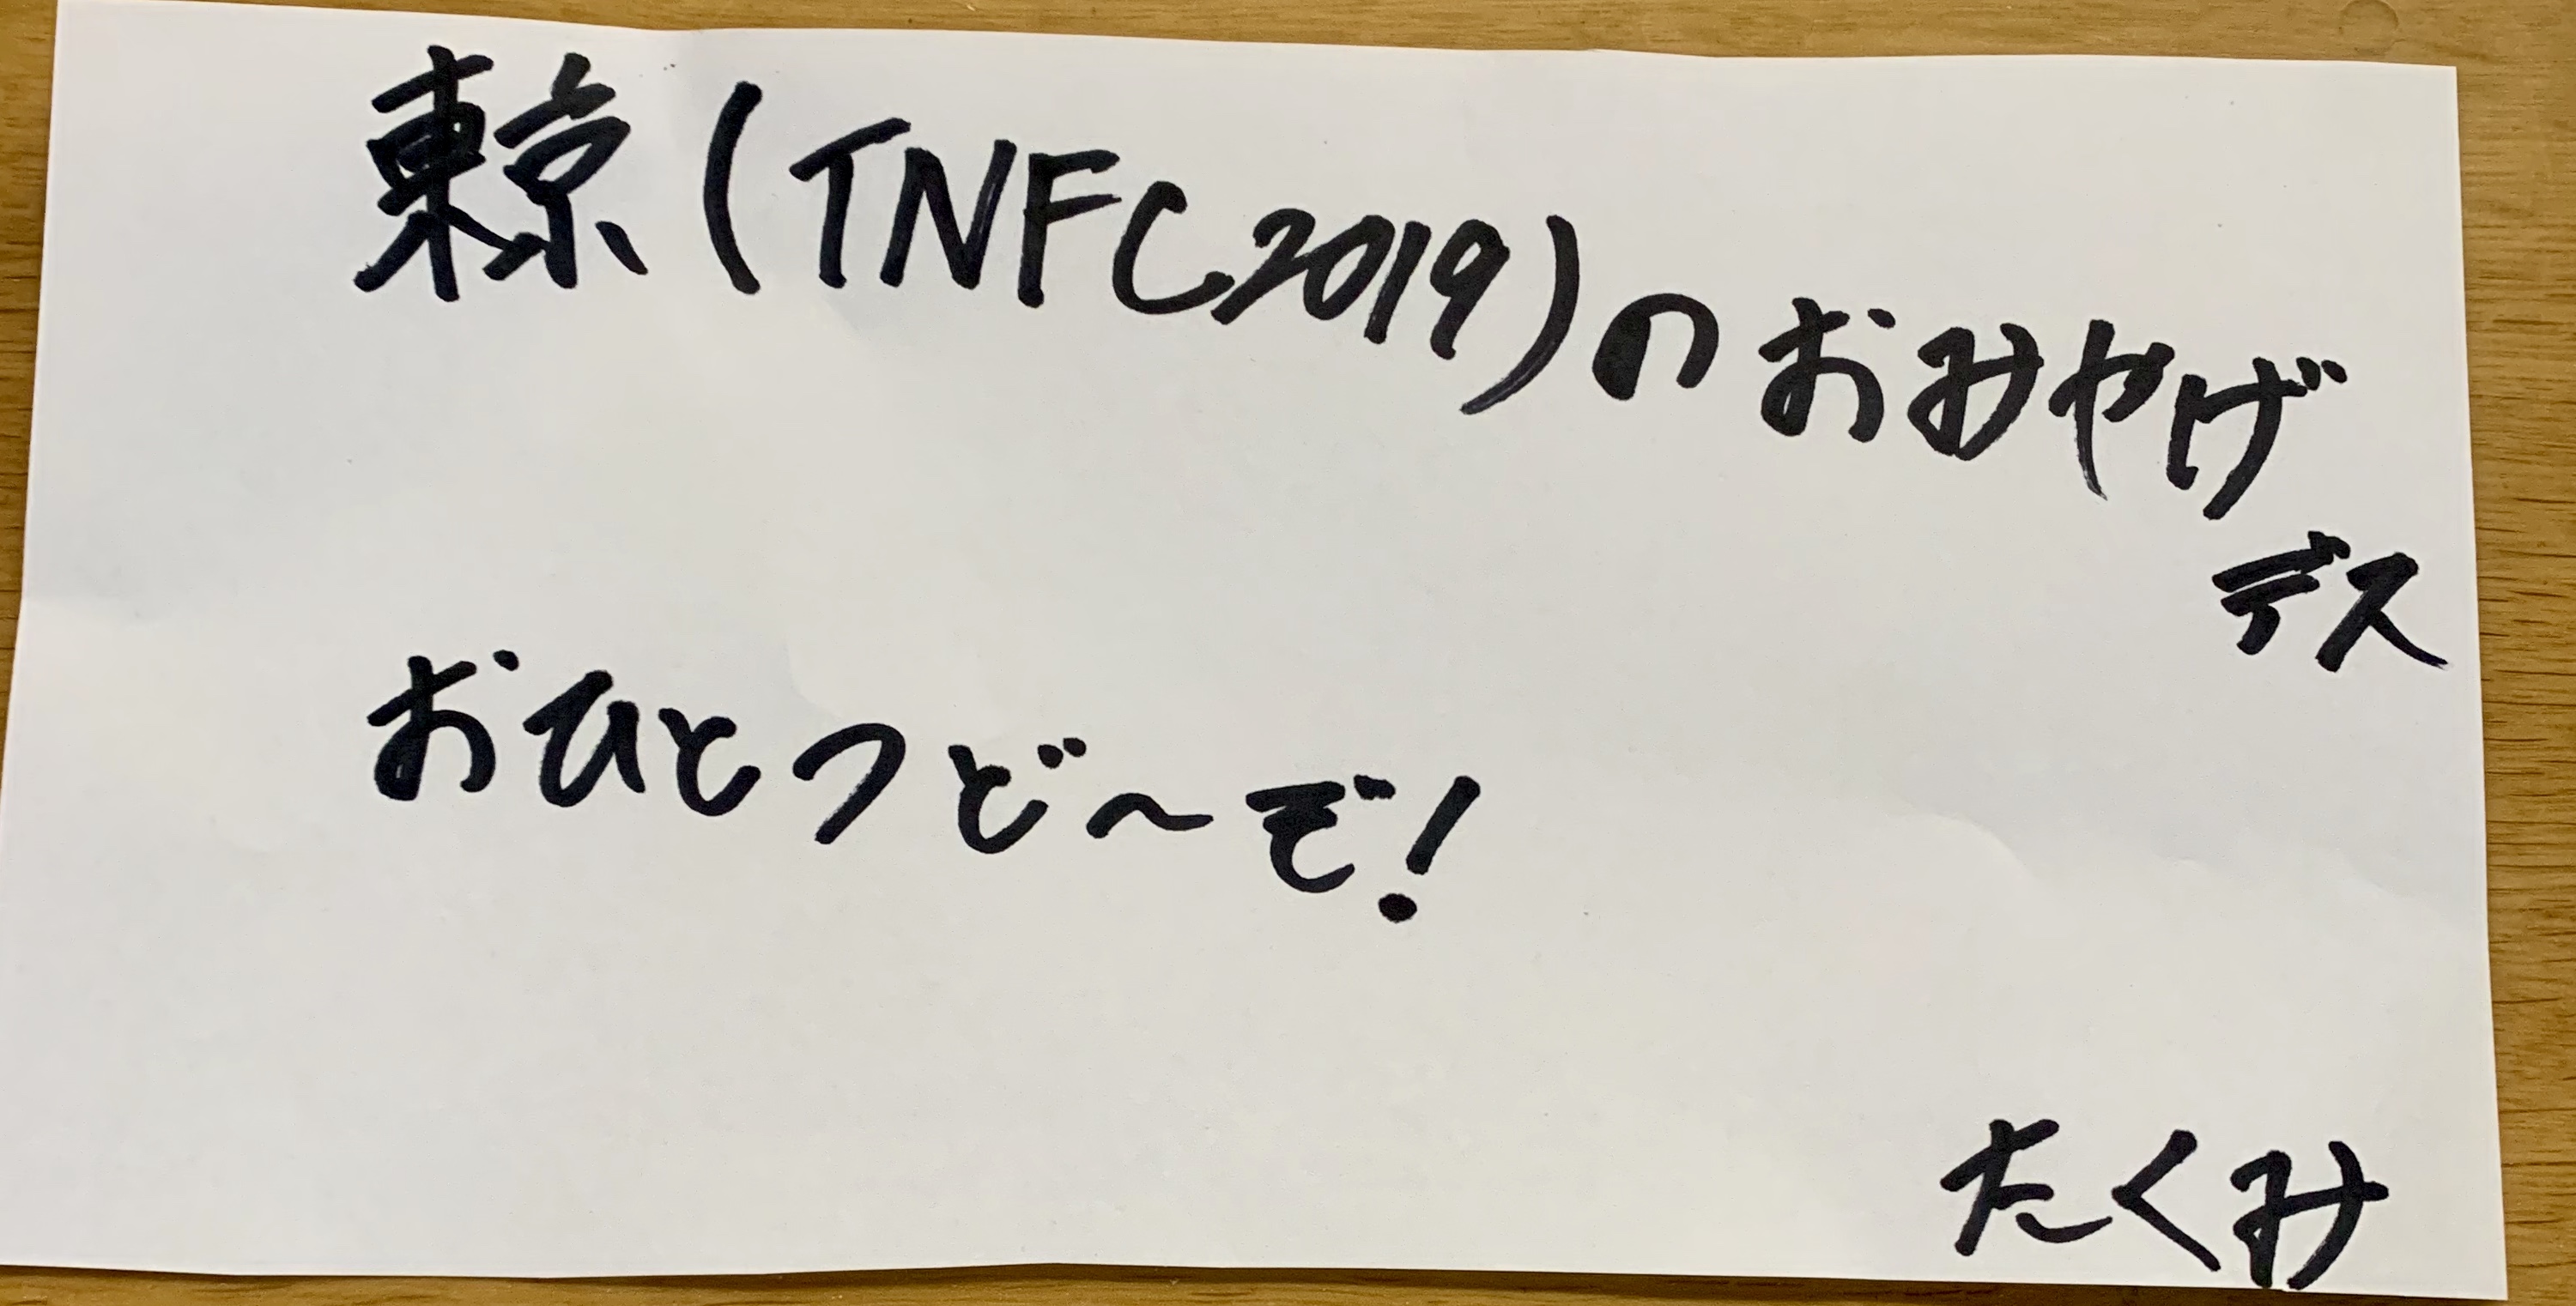 東京(TNFC2019)のおみやげ
デス
おひとつど〜ぞ!
たくみ